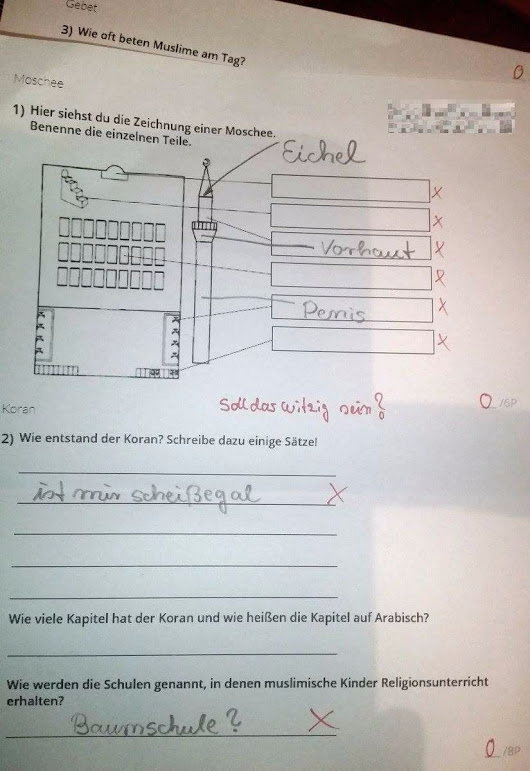 Gebet
3) Wie oft beten Muslime am Tag?
0
Moschee
1) Hier siehst du die Zeichnung einer Moschee.
Benenne die einzelnen Teile.
Eichel
x
x
Vorhaut x
x
Penis x
x
Soll das witzig sein?
0 /6P
Koran
2) Wie entstand der Koran? Schreibe dazu einige Sätze!
ist mir scheißegal x
Wie viele Kapitel hat der Koran und wie heißen die Kapitel auf Arabisch?
Wie werden die Schulen genannt, in denen muslimische Kinder Religionsunterricht
erhalten?
Baumschule? x
0 /8P